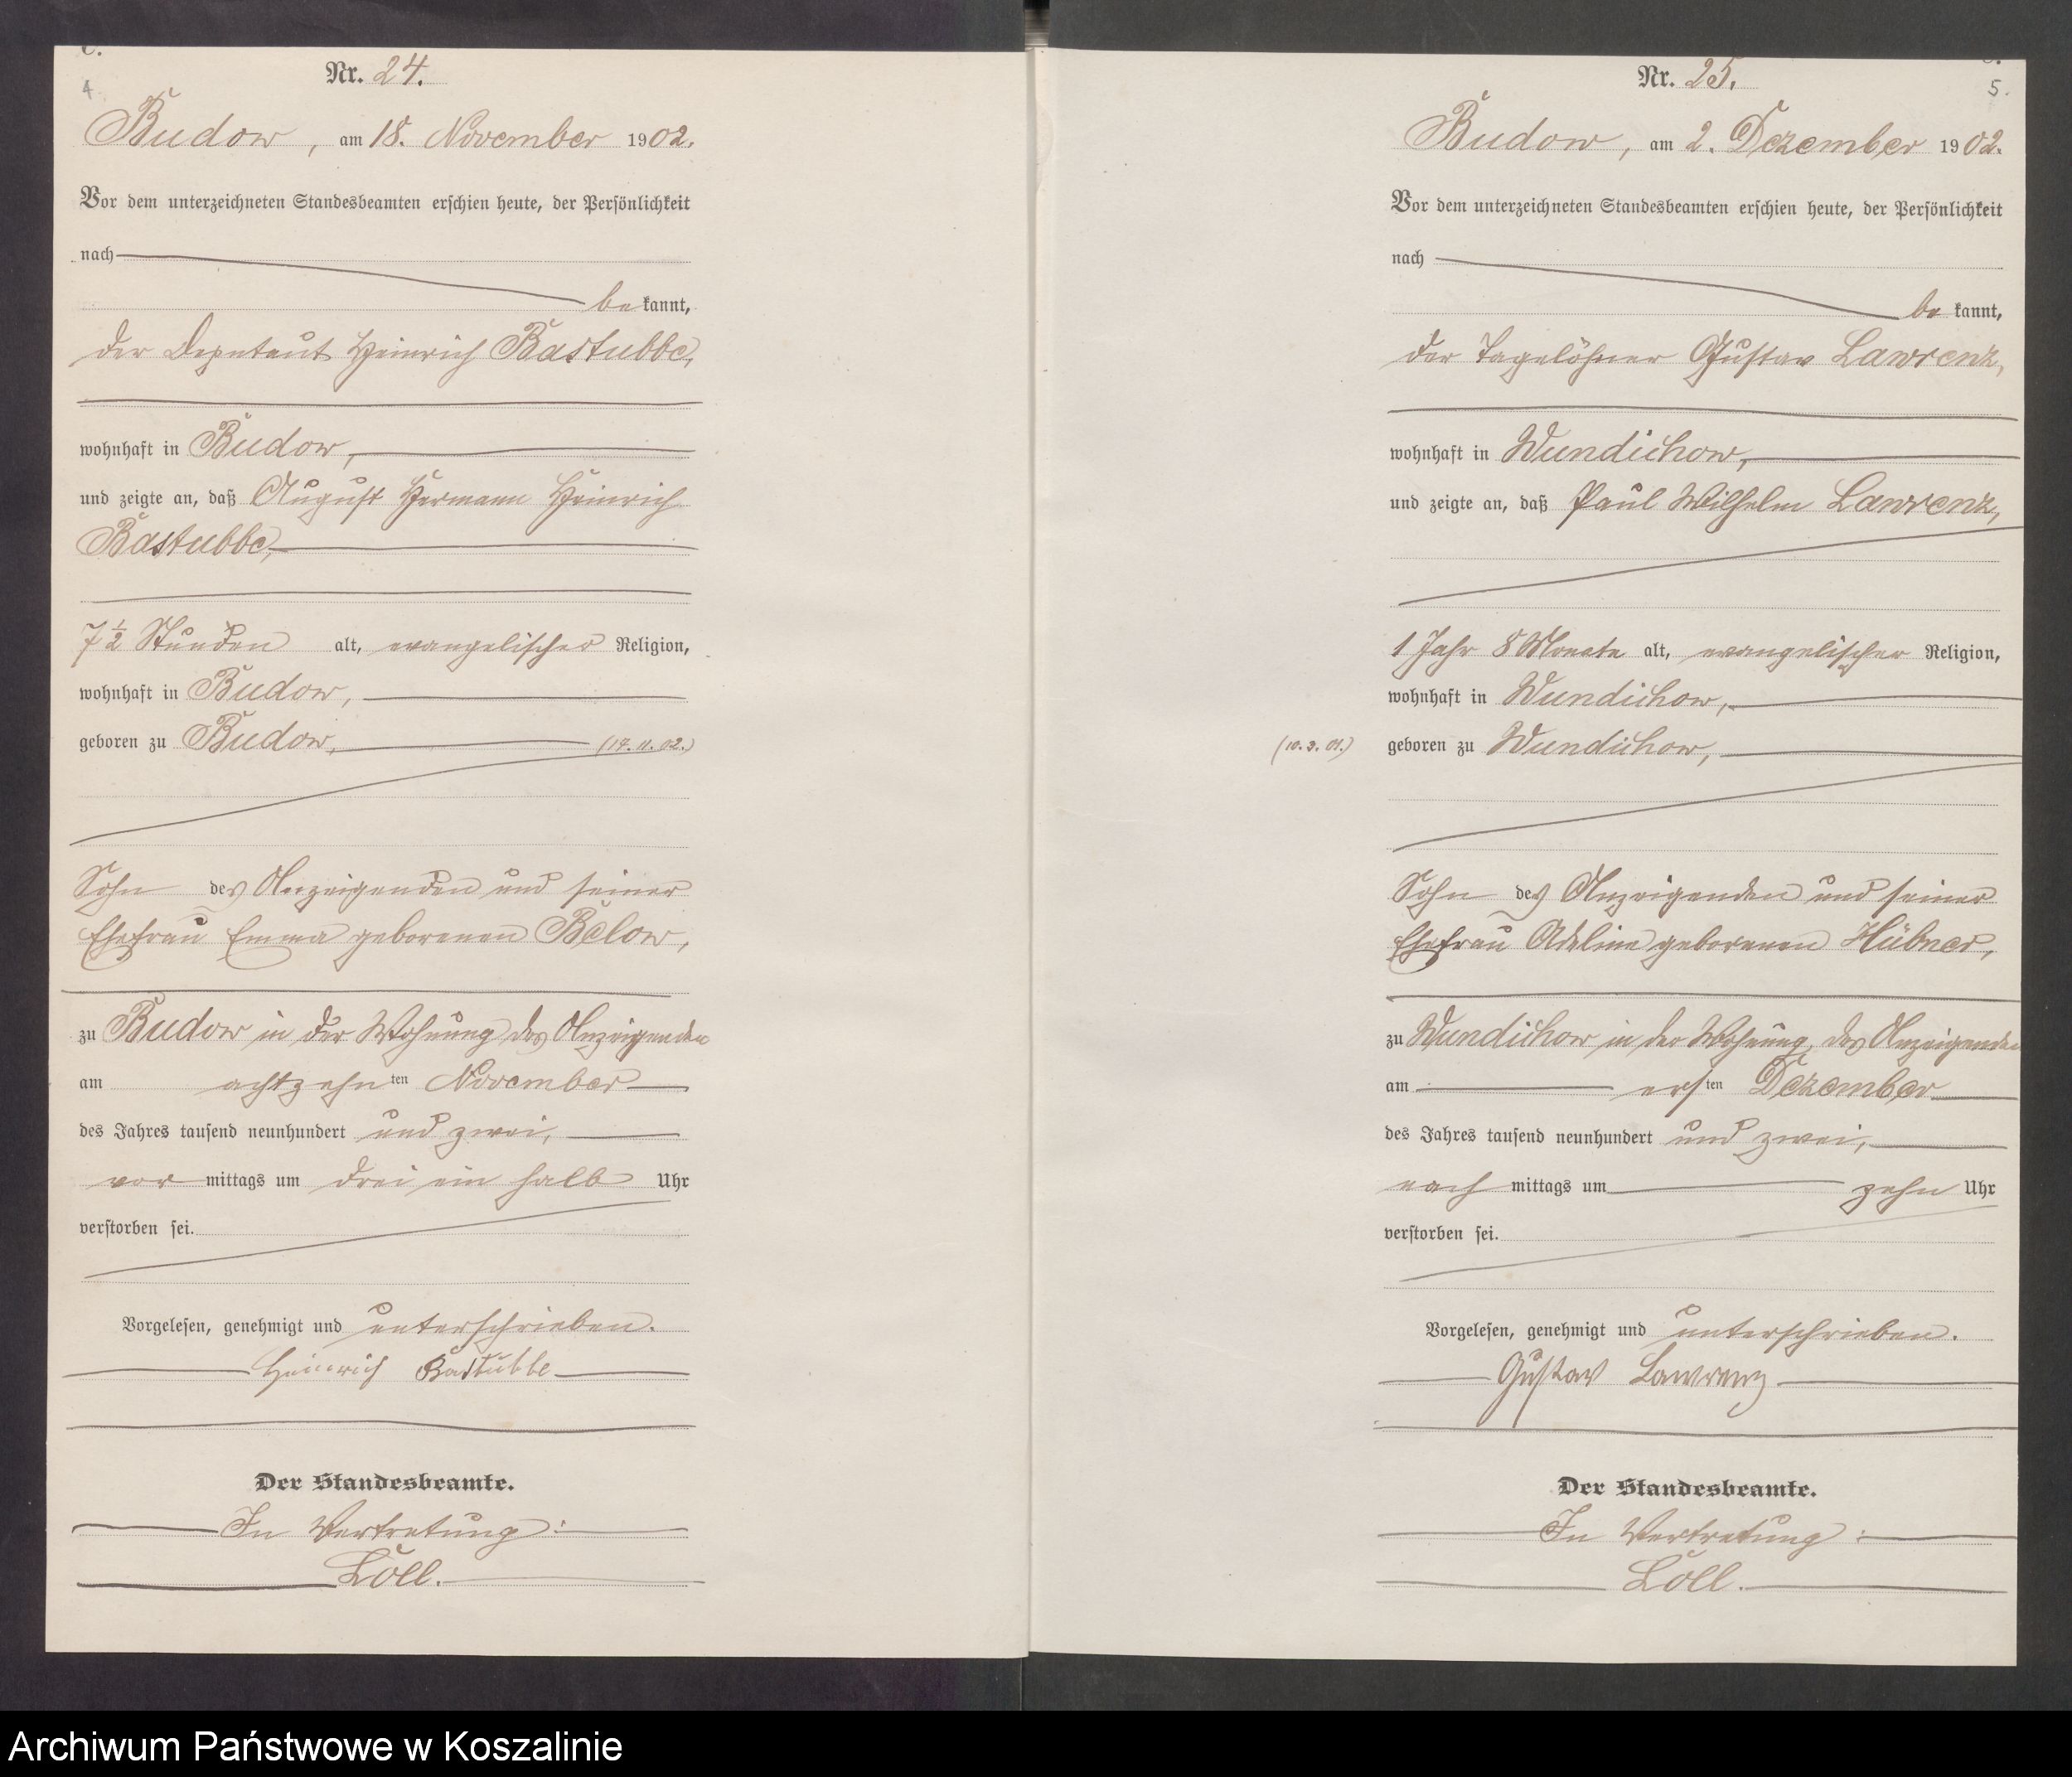 C.
4
Nr. 24.
Budow, am 18. November 1902.
Vor dem unterzeichneten Standesbeamten erschien heute, der Persönlichkeit
nach
bekannt,
der Deputant Heinrich Bastubbe,
wohnhaft in Budow,
und zeigte an, daß August Hermann Heinrich
Bastubbe,
7 1/2 Stunden alt, evangelischer Religion,
wohnhaft in Budow,
geboren zu Budow, (17. 11. 02.)
Sohn des Anzeigenden und seiner
Ehefrau Emma geborenen Below,
zu Budow in der Wohnung des Anzeigenden
am achtzehnten November
des Jahres tausend neunhundert und zwei,
vormittags um drei ein halb Uhr
verstorben sei.
Vorgelesen, genehmigt und unterschrieben.
Heinrich Bastubbe
Der Standesbeamte.
In Vertretung:
Löll.
5.
Nr. 25.
Budow, am 2. Dezember 1902.
Vor dem unterzeichneten Standesbeamten erschien heute, der Persönlichkeit
nach
bekannt,
der Tagelöhner Gustav Lawrenz,
wohnhaft in Wundichow,
und zeigte an, daß Paul Wilhelm Lawrenz,
1 Jahr 8 Monate alt, evangelischer Religion,
wohnhaft in Wundichow,
(10. 3. 01.) geboren zu Wundichow,
Sohn des Anzeigenden und seiner
Ehefrau Adeline geborenen Hübner,
zu Wundichow in der Wohnung des Anzeigenden
am ersten Dezember
des Jahres tausend neunhundert und zwei,
nachmittags um zehn Uhr
verstorben sei.
Vorgelesen, genehmigt und unterschrieben.
Gustav Lawrenz
Der Standesbeamte.
In Vertretung:
Löll.
Archiwum Państwowe w Koszalinie